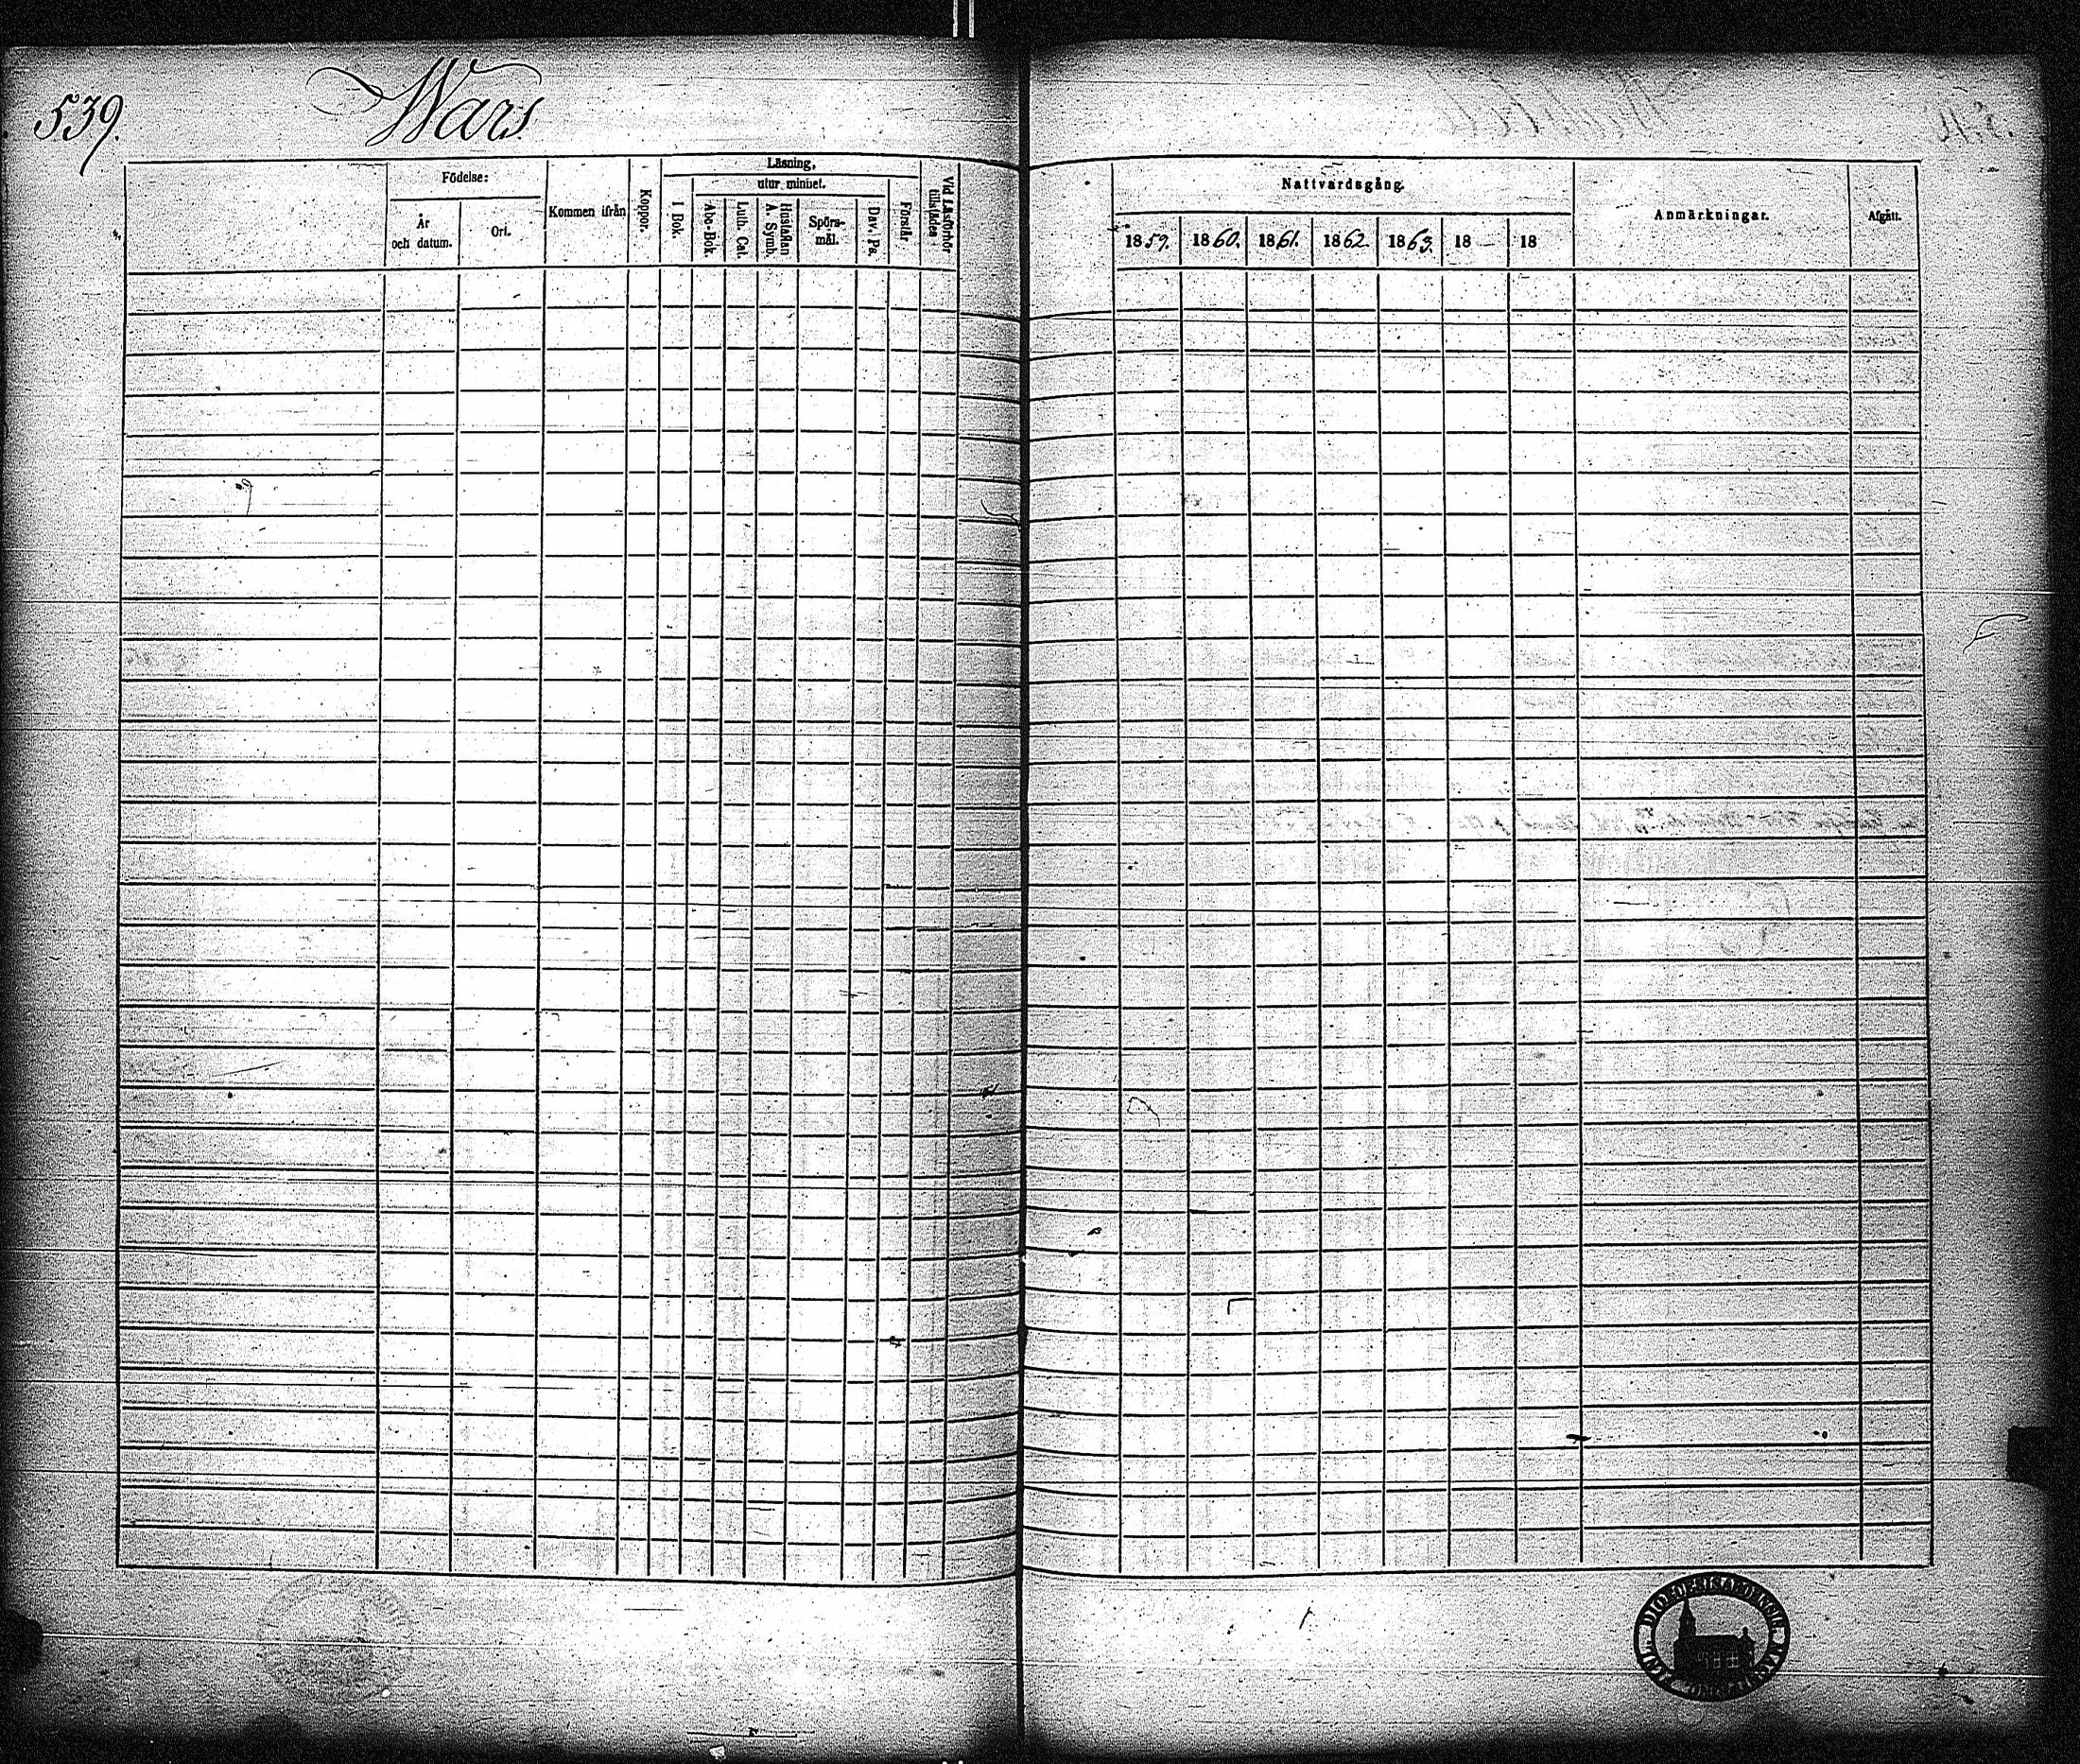 539.
Wars
Födelse:
År
och datum.
Ort.
Kommen ifrån
Koppor.
Läsning,
utur minnet.
I Bok.
Abc-Bok.
Luth. Cat.
Hustaflan
A. Symb.
Spörs-
mål.
Dav. Ps.
Förstår
Vid Läsförhör
tillstädes
Nattvardsgång.
1859.
1860.
1861.
1862.
1863.
18
18
Anmärkningar.
Afgått.